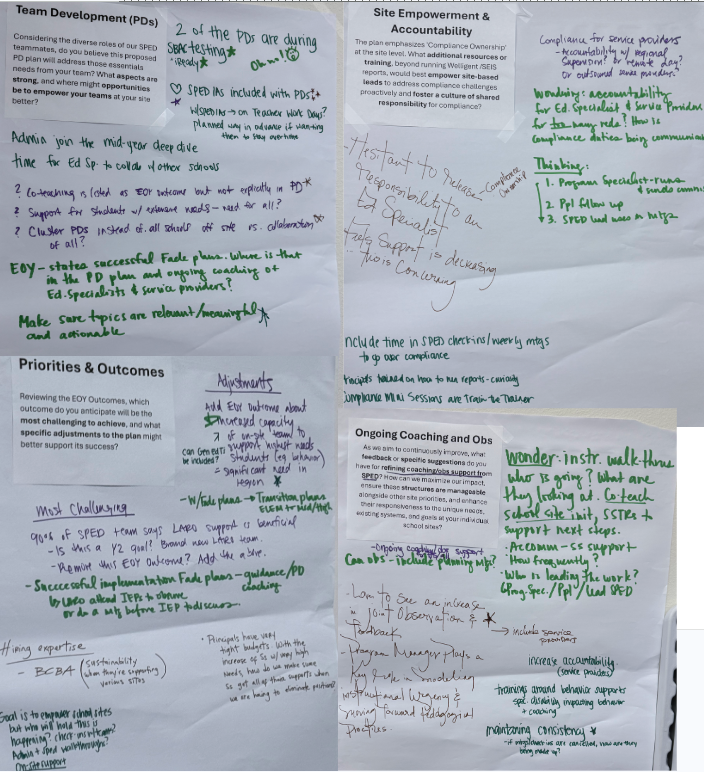 Team Development (PDs)
Considering the diverse roles of our SPED
teammates, do you believe this proposed
PD plan will address those essentials
needs from your team? What aspects are
strong, and where might opportunities
be to empower your teams at your site
better?
2 of the PDs are during
SBAC testing
iReady
Oh no!
SPED IAs included with PDs
w/SPED IAs → on Teacher Work Days?
Planned way in advance if wanting
them to stay overtime
Admin join the mid-year deep dive
time for Ed Sp. to collab w/ other schools
? Co-teaching is listed as EOY outcome but not explicitly in PD
? Support for students w/ extensive needs - need for all?
? Cluster PDs instead of all schools off site vs. collaboration
of all?
EOY - states successful Fade plans. Where is that
in the PD plan and ongoing coaching of
Ed. Specialists & service providers?
Make sure topics are relevant/meaningful
and actionable
Site Empowerment &
Accountability
The plan emphasizes 'Compliance Ownership'
at the site level. What additional resources or
training, beyond running Welligent /SEIS
reports, would best empower site-based
leads to address compliance challenges
proactively and foster a culture of shared
responsibility for compliance?
Compliance for service providers
- Accountability w/ regional
Supervision? or remote day?
Or outsourced service providers
Wondering: accountability
for Ed. Specialist & Service Providers
for too many reds? How is
compliance duties being communicated
Thinking:
1. Program Specialist - runs
& sends comms
2. Ppl follow up
3. SPED lead uses in mtgs
- Hesitant to release
Compliance
Ownership
Responsibility to an
Ed Specialist
Feels Support is decreasing
this is Concerning
Include time in SPED check-ins/weekly mtgs
to go over compliance
Principals trained on how to run reports - curiosity
Compliance Mini Sessions are Train the Trainer
Priorities & Outcomes
Reviewing the EOY Outcomes, which
outcome do you anticipate will be the
most challenging to achieve, and what
specific adjustments to the plan might
better support its success?
Adjustments
Add EOY outcome about
increased capacity
of on-site team to
support highest needs
students (eg behavior)
= significant need in
region
can Gen Ed
be included?
- W/Fade plans → Transition plans
Most Challenging
90% of SPED team says support is beneficial
- Is this a Y2 goal? Brand new team.
- Remove this EOY outcome? Add the above.
- Successful implementation Fade plans - guidance/PD
coaching
attend IEPs to observe
or do a mtg before IEP to discuss.
Hiring expertise
- BCBA (sustainability
when they're supporting
various sites)
• Principals have very
tight budgets. With the
increase of Ss w/ very high
needs, how do we make sure
Ss get all of their supports when
we are having to eliminate positions?
Goal is to empower school sites
but who will hold this is
happening? check-ins w/team?
Admin + sped walkthroughs?
On-site support
Ongoing Coaching and Obs
As we aim to continuously improve, what
feedback or specific suggestions do you
have for refining coaching/obs support from
SPED? How can we maximize our impact,
ensure these structures are manageable
alongside other site priorities, and enhance
their responsiveness to the unique needs,
existing systems, and goals at your individual
school sites?
Can obs - include planning mtg?
Wonder: instr. walk-thrus
who is going? What are
they looking at. Co-teach
school site init, SSTRs +
support next steps.
• Accomm - ss support
How frequently?
• Who is leading the work?
Prog. Spec./Ppl/Lead SPED
- Love to see an increase
in joint Observation &
Feedback
→ include service
providers
- Program Manager Plays a
Key role in modeling
instructional Urgency &
moving forward Pedagogical
Practices.
increase accountability
(service providers)
trainings around behavior supports
spec. disability impacting behavior
+ coaching
maintaining consistency
- if are cancelled, how are they
being made up?